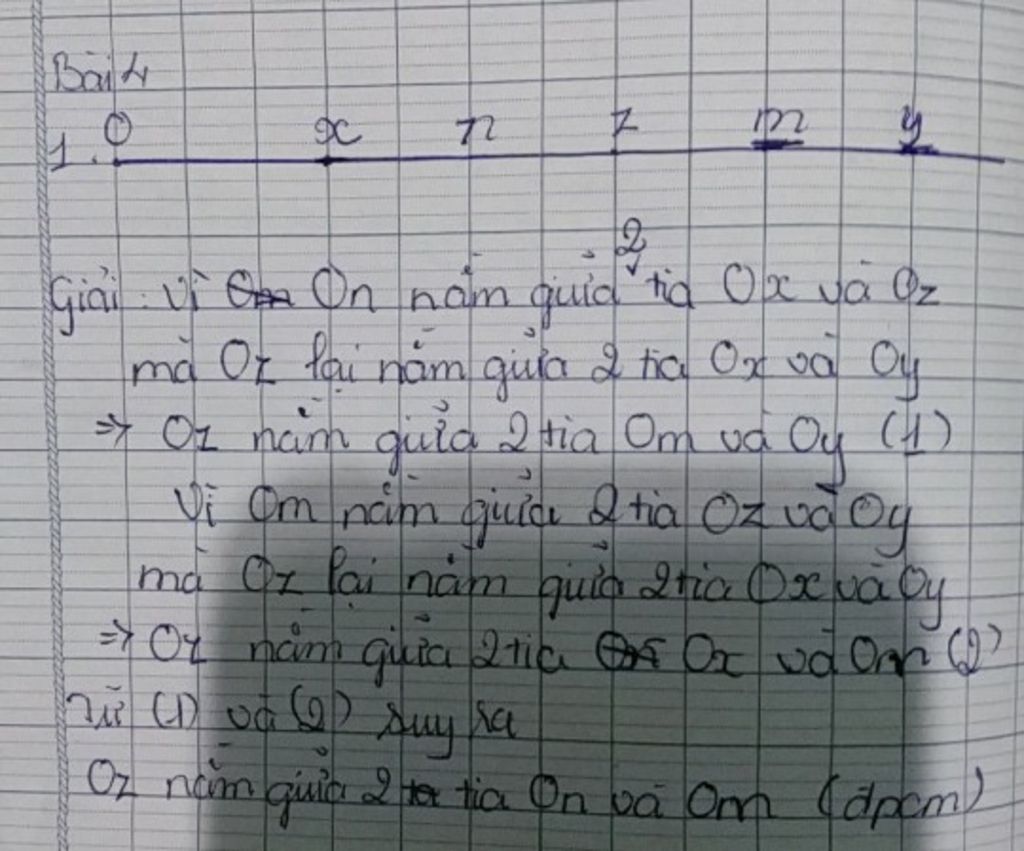 Bài 4
1. O x n z m y
2
Giải: Vì On nằm giữa tia Ox và Oz
mà Oz lại nằm giữa 2 tia Ox và Oy
=> Oz nằm giữa 2 tia Om và Oy (1)
Vì Om nằm giữa 2 tia Oz và Oy
mà Oz lại nằm giữa 2 tia Ox và Oy
=> Oz nằm giữa 2 tia Ox và Om (2)
Từ (1) và (2) suy ra
Oz nằm giữa 2 tia On và Om (đpcm)